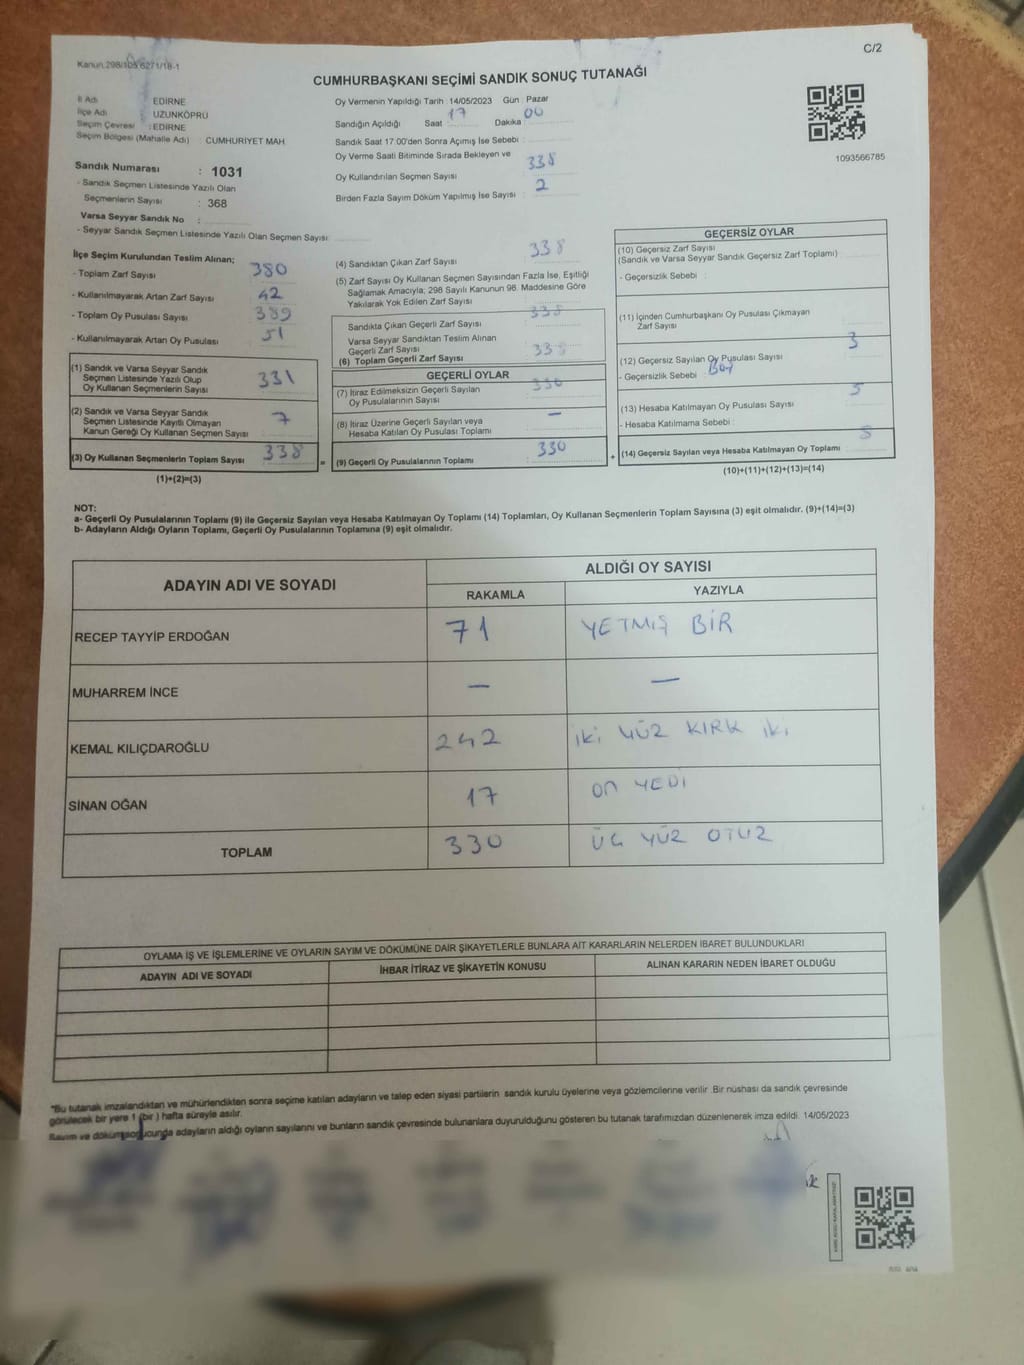 C/2
Kanun 298/105 6271/18-1
CUMHURBAŞKANI SEÇİMİ SANDIK SONUÇ TUTANAĞI
İl Adı EDİRNE
İlçe Adı UZUNKÖPRÜ
Seçim Çevresi : EDİRNE
Seçim Bölgesi (Mahalle Adı) CUMHURİYET MAH
Sandık Numarası : 1031
- Sandık Seçmen Listesinde Yazılı Olan
Seçmenlerin Sayısı : 368
Varsa Seyyar Sandık No :
- Seyyar Sandık Seçmen Listesinde Yazılı Olan Seçmen Sayısı
Oy Vermenin Yapıldığı Tarih 14/05/2023 Gün : Pazar
Sandığın Açıldığı Saat 17 Dakika : 00
Sandık Saat 17:00'den Sonra Açımış İse Sebebi :
Oy Verme Saati Bitiminde Sırada Bekleyen ve
Oy Kullandırılan Seçmen Sayısı 338
Birden Fazla Sayım Döküm Yapılmış İse Sayısı : 2
1093566785
İlçe Seçim Kurulundan Teslim Alınan;
- Toplam Zarf Sayısı 380
- Kullanılmayarak Artan Zarf Sayısı 42
- Toplam Oy Pusulası Sayısı 389
- Kullanılmayarak Artan Oy Pusulası 51
(1) Sandık ve Varsa Seyyar Sandık
Seçmen Listesinde Yazılı Olup
Oy Kullanan Seçmenlerin Sayısı 331
(2) Sandık ve Varsa Seyyar Sandık
Seçmen Listesinde Kayıtlı Olmayan
Kanun Gereği Oy Kullanan Seçmen Sayısı 7
(3) Oy Kullanan Seçmenlerin Toplam Sayısı 338
(1)+(2)=(3)
(4) Sandıktan Çıkan Zarf Sayısı 338
(5) Zarf Sayısı Oy Kullanan Seçmen Sayısından Fazla İse, Eşitliği
Sağlamak Amacıyla; 298 Sayılı Kanunun 98. Maddesine Göre
Yakılarak Yok Edilen Zarf Sayısı
Sandıkta Çıkan Geçerli Zarf Sayısı 338
Varsa Seyyar Sandıktan Teslim Alınan
Geçerli Zarf Sayısı
(6) Toplam Geçerli Zarf Sayısı 338
GEÇERLİ OYLAR
(7) İtiraz Edilmeksizin Geçerli Sayılan
Oy Pusulalarının Sayısı 330
(8) İtiraz Üzerine Geçerli Sayılan veya
Hesaba Katılan Oy Pusulası Toplamı —
= (9) Geçerli Oy Pusulalarının Toplamı 330
GEÇERSİZ OYLAR
(10) Geçersiz Zarf Sayısı
(Sandık ve Varsa Seyyar Sandık Geçersiz Zarf Toplamı)
- Geçersizlik Sebebi :
(11) İçinden Cumhurbaşkanı Oy Pusulası Çıkmayan
Zarf Sayısı
3
(12) Geçersiz Sayılan Oy Pusulası Sayısı
- Geçersizlik Sebebi :
5
(13) Hesaba Katılmayan Oy Pusulası Sayısı
- Hesaba Katılmama Sebebi :
+ (14) Geçersiz Sayılan veya Hesaba Katılmayan Oy Toplamı 8
(10)+(11)+(12)+(13)=(14)
NOT:
a- Geçerli Oy Pusulalarının Toplamı (9) ile Geçersiz Sayılan veya Hesaba Katılmayan Oy Toplamı (14) Toplamları, Oy Kullanan Seçmenlerin Toplam Sayısına (3) eşit olmalıdır. (9)+(14)=(3)
b- Adayların Aldığı Oyların Toplamı, Geçerli Oy Pusulalarının Toplamına (9) eşit olmalıdır.
ADAYIN ADI VE SOYADI
ALDIĞI OY SAYISI
RAKAMLA YAZIYLA
RECEP TAYYİP ERDOĞAN 71 YETMİŞ BİR
MUHARREM İNCE — —
KEMAL KILIÇDAROĞLU 242 iki YÜZ KIRK iki
SİNAN OĞAN 17 on YEDİ
TOPLAM 330 ÜÇ YÜZ OTUZ
OYLAMA İŞ VE İŞLEMLERİNE VE OYLARIN SAYIM VE DÖKÜMÜNE DAİR ŞİKAYETLERLE BUNLARA AİT KARARLARIN NELERDEN İBARET BULUNDUKLARI
ADAYIN ADI VE SOYADI İHBAR İTİRAZ VE ŞİKAYETİN KONUSU ALINAN KARARIN NEDEN İBARET OLDUĞU
*Bu tutanak imzalandıktan ve mühürlendikten sonra seçime katılan adayların ve talep eden siyasi partilerin sandık kurulu üyelerine veya gözlemcilerine verilir. Bir nüshası da sandık çevresinde
görülecek bir yere 1 (bir ) hafta süreyle asılır.
Sayım ve döküm sonucunda adayların aldığı oyların sayılarını ve bunların sandık çevresinde bulunanlara duyurulduğunu gösteren bu tutanak tarafımızdan düzenlenerek imza edildi. 14/05/2023